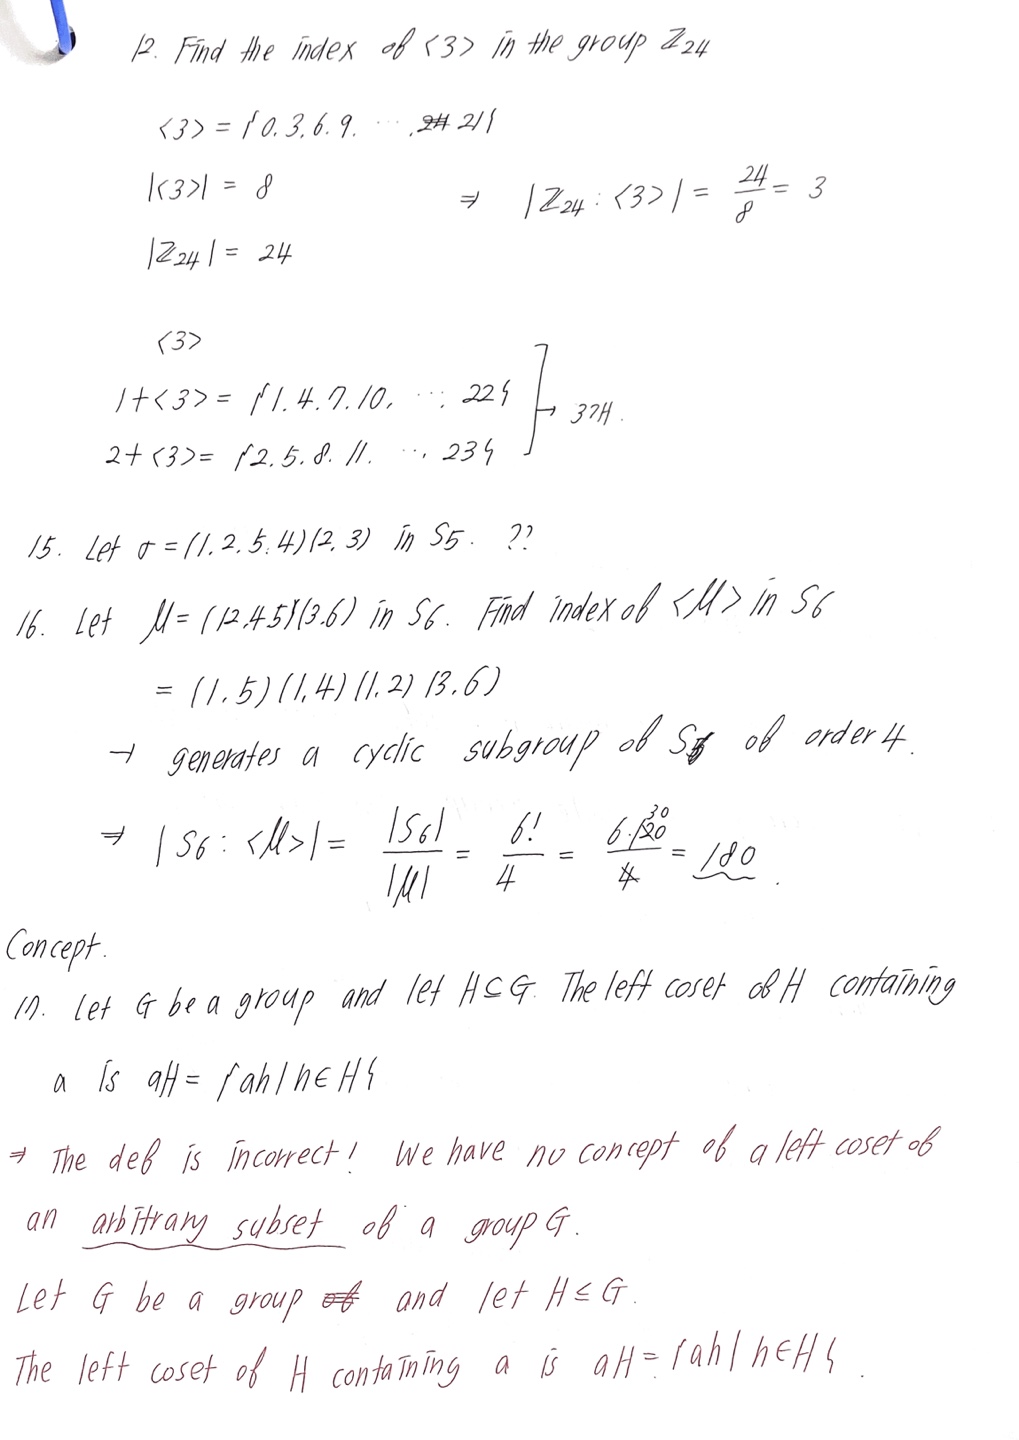 12. Find the index of <3> in the group ℤ24
<3> = {0.3.6.9. ⋯ . 21}
|<3>| = 8
⇒ |ℤ24 : <3>| = 24/8 = 3
|ℤ24| = 24
<3>
1+<3> = {1.4.7.10. ⋯. 22}
→ 3개.
2+<3> = {2.5.8.11. ⋯. 23}
15. Let σ = (1.2.5.4)(2.3) in S5. ??
16. Let μ = (1 2.4 5)(3.6) in S6. Find index of <μ> in S6
= (1.5)(1.4)(1.2)(3.6)
→ generates a cyclic subgroup of S of order 4.
⇒ |S6 : <μ>| = |S6|/|μ| = 6!/4 = 6·120/4 30 = 180.
Concept.
17. Let G be a group and let H⊆G. The left coset of H containing
a is aH = {ah|h∈H}
⇒ The def is incorrect! We have no concept of a left coset of
an arbitrary subset of a group G.
Let G be a group and let H≤G.
The left coset of H containing a is aH = {ah|h∈H}.